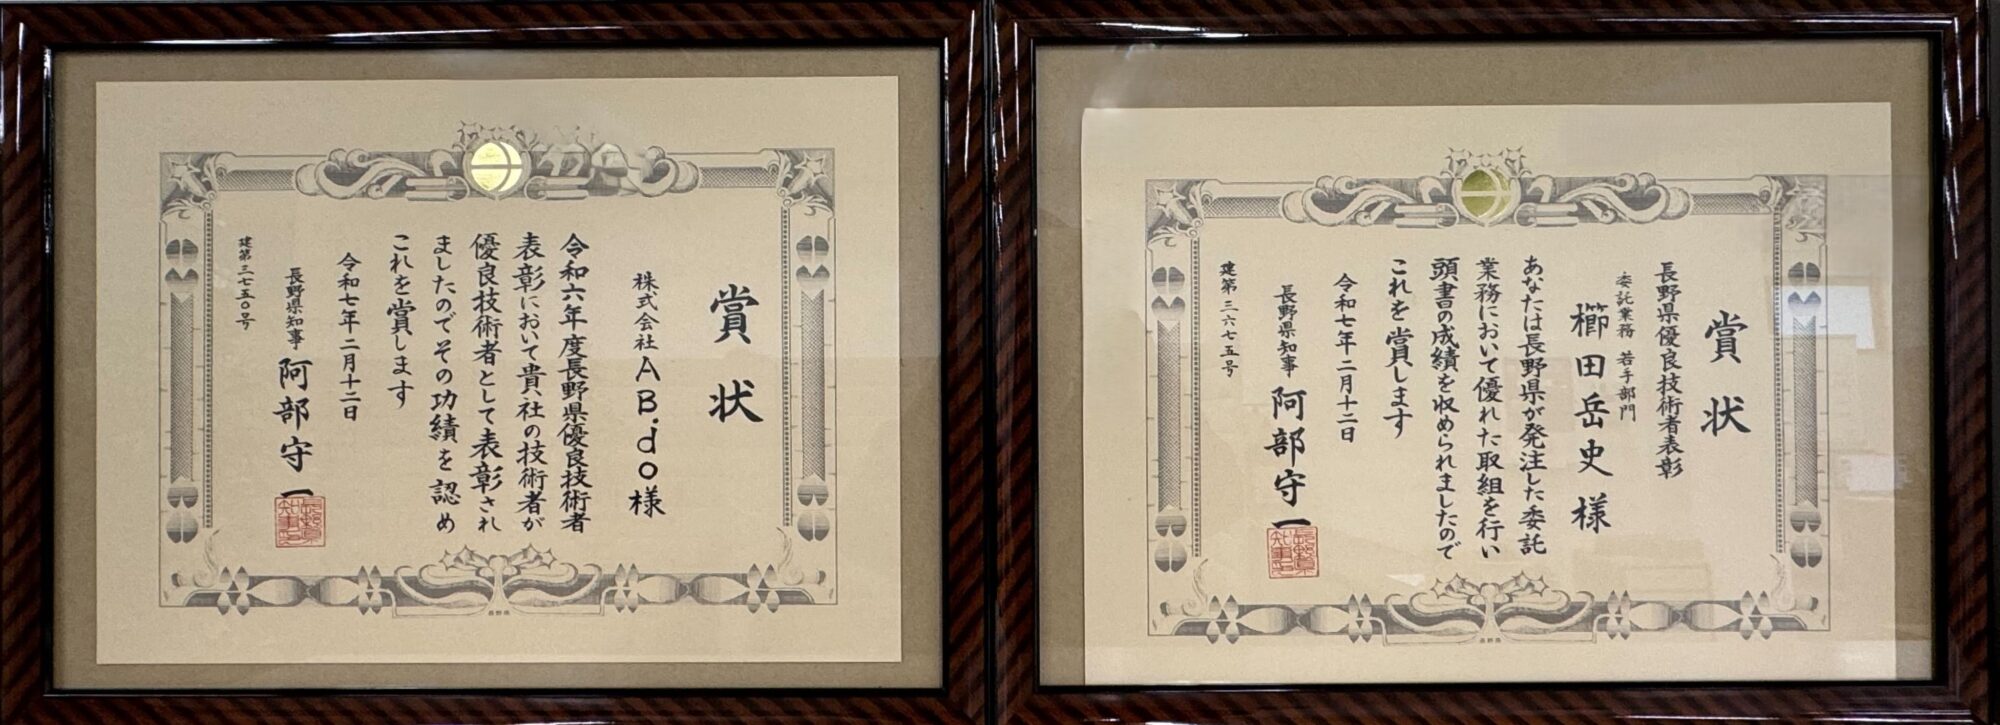 賞状
株式会社ABidо様
令和六年度長野県優良技術者
表彰において貴社の技術者が
優良技術者として表彰され
ましたのでその功績を認め
これを賞します
令和七年二月十二日
長野県知事 阿部守一
建第三七五〇号
長野県
賞状
長野県優良技術者表彰
委託業務 若手部門
櫛田岳史様
あなたは長野県が発注した委託
業務において優れた取組を行い
頭書の成績を収められましたので
これを賞します
令和七年二月十二日
長野県知事 阿部守一
建第三六七五号
長野県